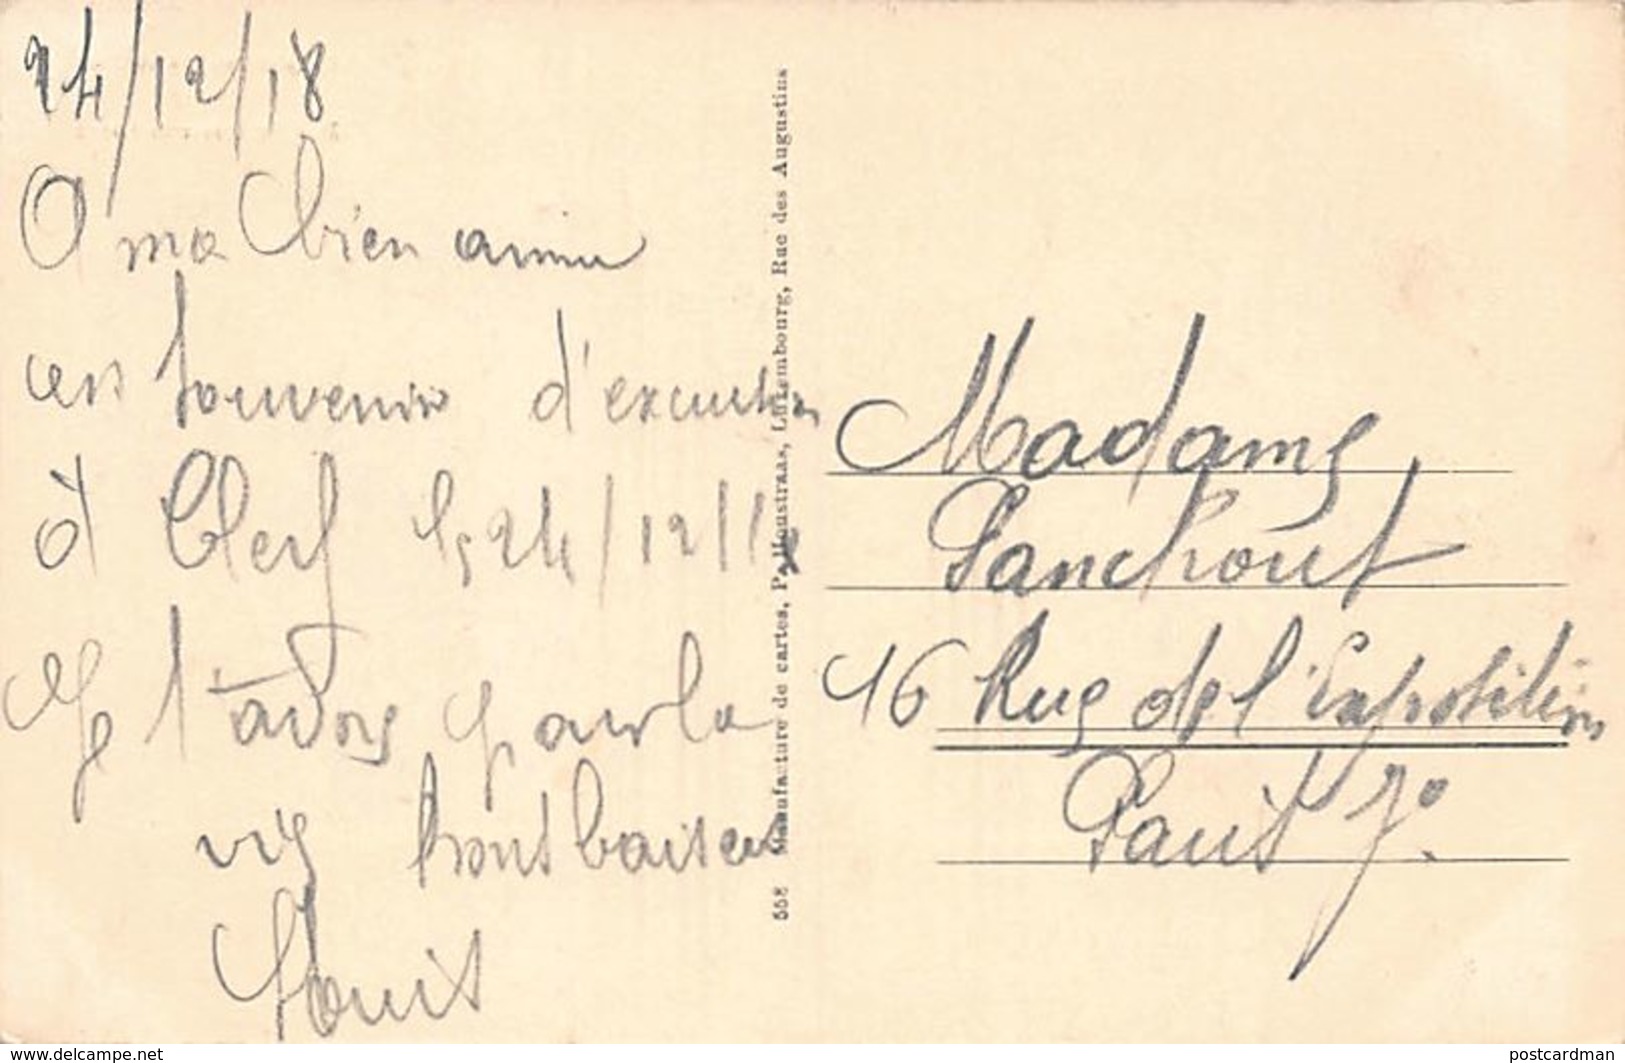 24/12/18
O ma bien aimee
en souvenir d'excursion
à Clerf le 24/12/18
Je t'adore pour la
vie bons baisers
Louis
558 Manufacture de cartes, P. Houstraas, Luxembourg, Rue des Augustins
Madame
Sanchout
16 Rue de l'Exposition
Paris 7e
www.delcampe.net
postcardman